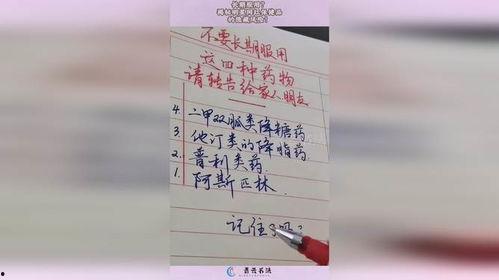 长期服用?
揭秘明星网红保健品
的隐藏风险!
不要长期服用
这四种药物
请转告给家人朋友
4. 二甲双胍类降糖药
3. 他汀类的降脂药
2. 普利类药
1. 阿斯匹林
记住了吗?